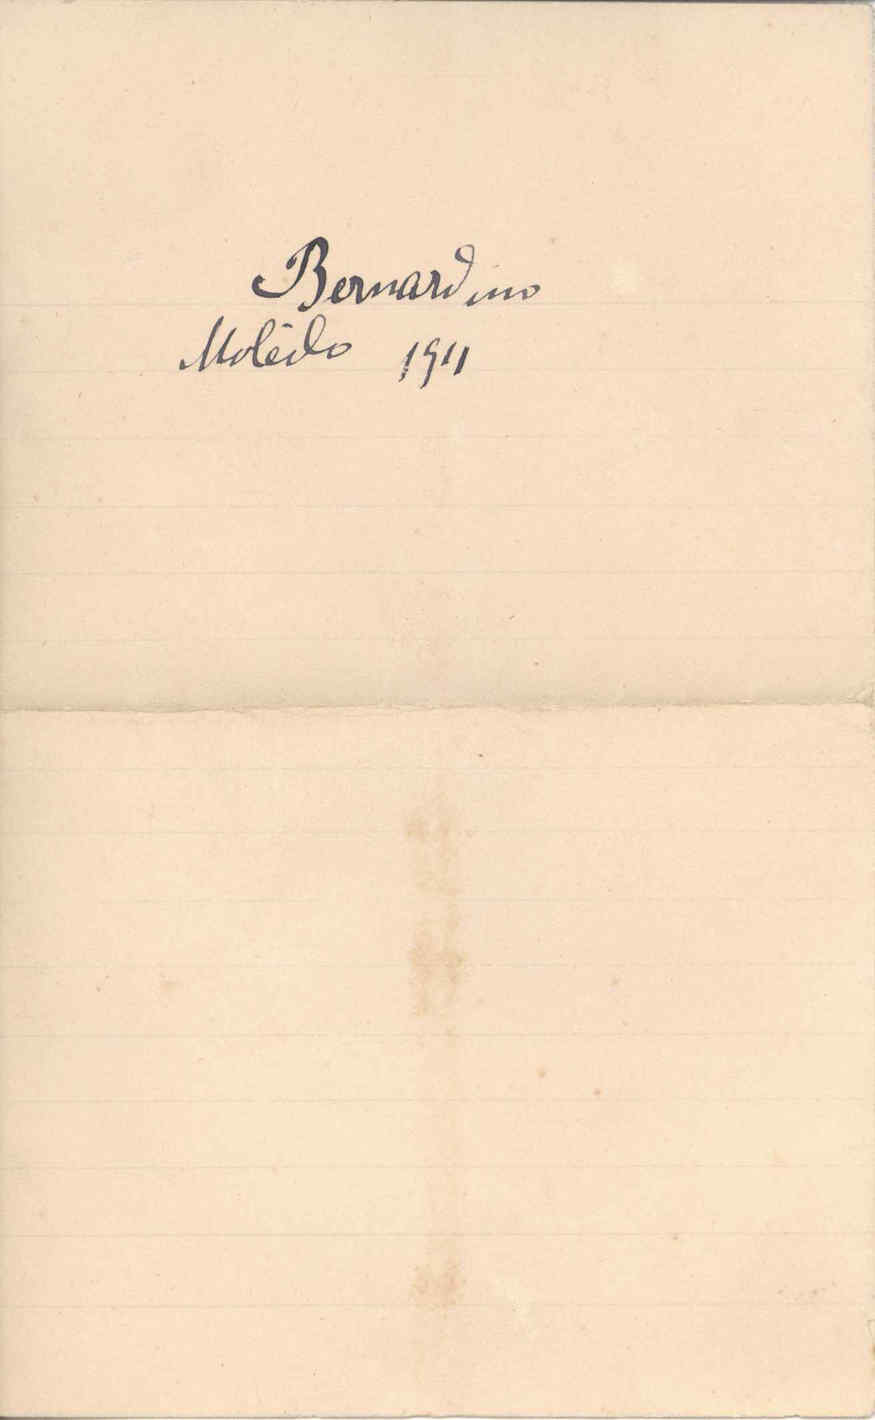 Bernardino
Molêdo 1911